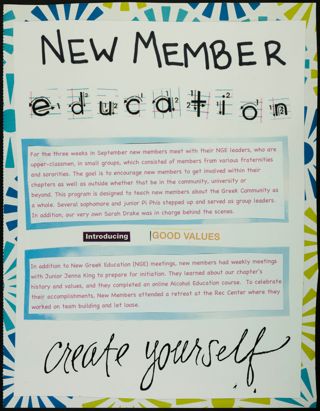 NEW MEMBER
education
For the three weeks in September new members meet with their NGE leaders, who are
upper-classmen, in small groups, which consisted of members from various fraternities
and sororities. The goal is to encourage new members to get involved within their
chapters as well as outside whether that be in the community, university or
beyond. This program is designed to teach new members about the Greek Community as
a whole. Several sophomore and junior Pi Phis stepped up and served as group leaders.
In addition, our very own Sarah Drake was in charge behind the scenes.
Introducing GOOD VALUES
In addition to New Greek Education (NGE) meetings, new members had weekly meetings
with Junior Jenna King to prepare for initiation. They learned about our chapter's
history and values, and they completed an online Alcohol Education course. To celebrate
their accomplishments, New Members attended a retreat at the Rec Center where they
worked on team building and let loose.
create yourself